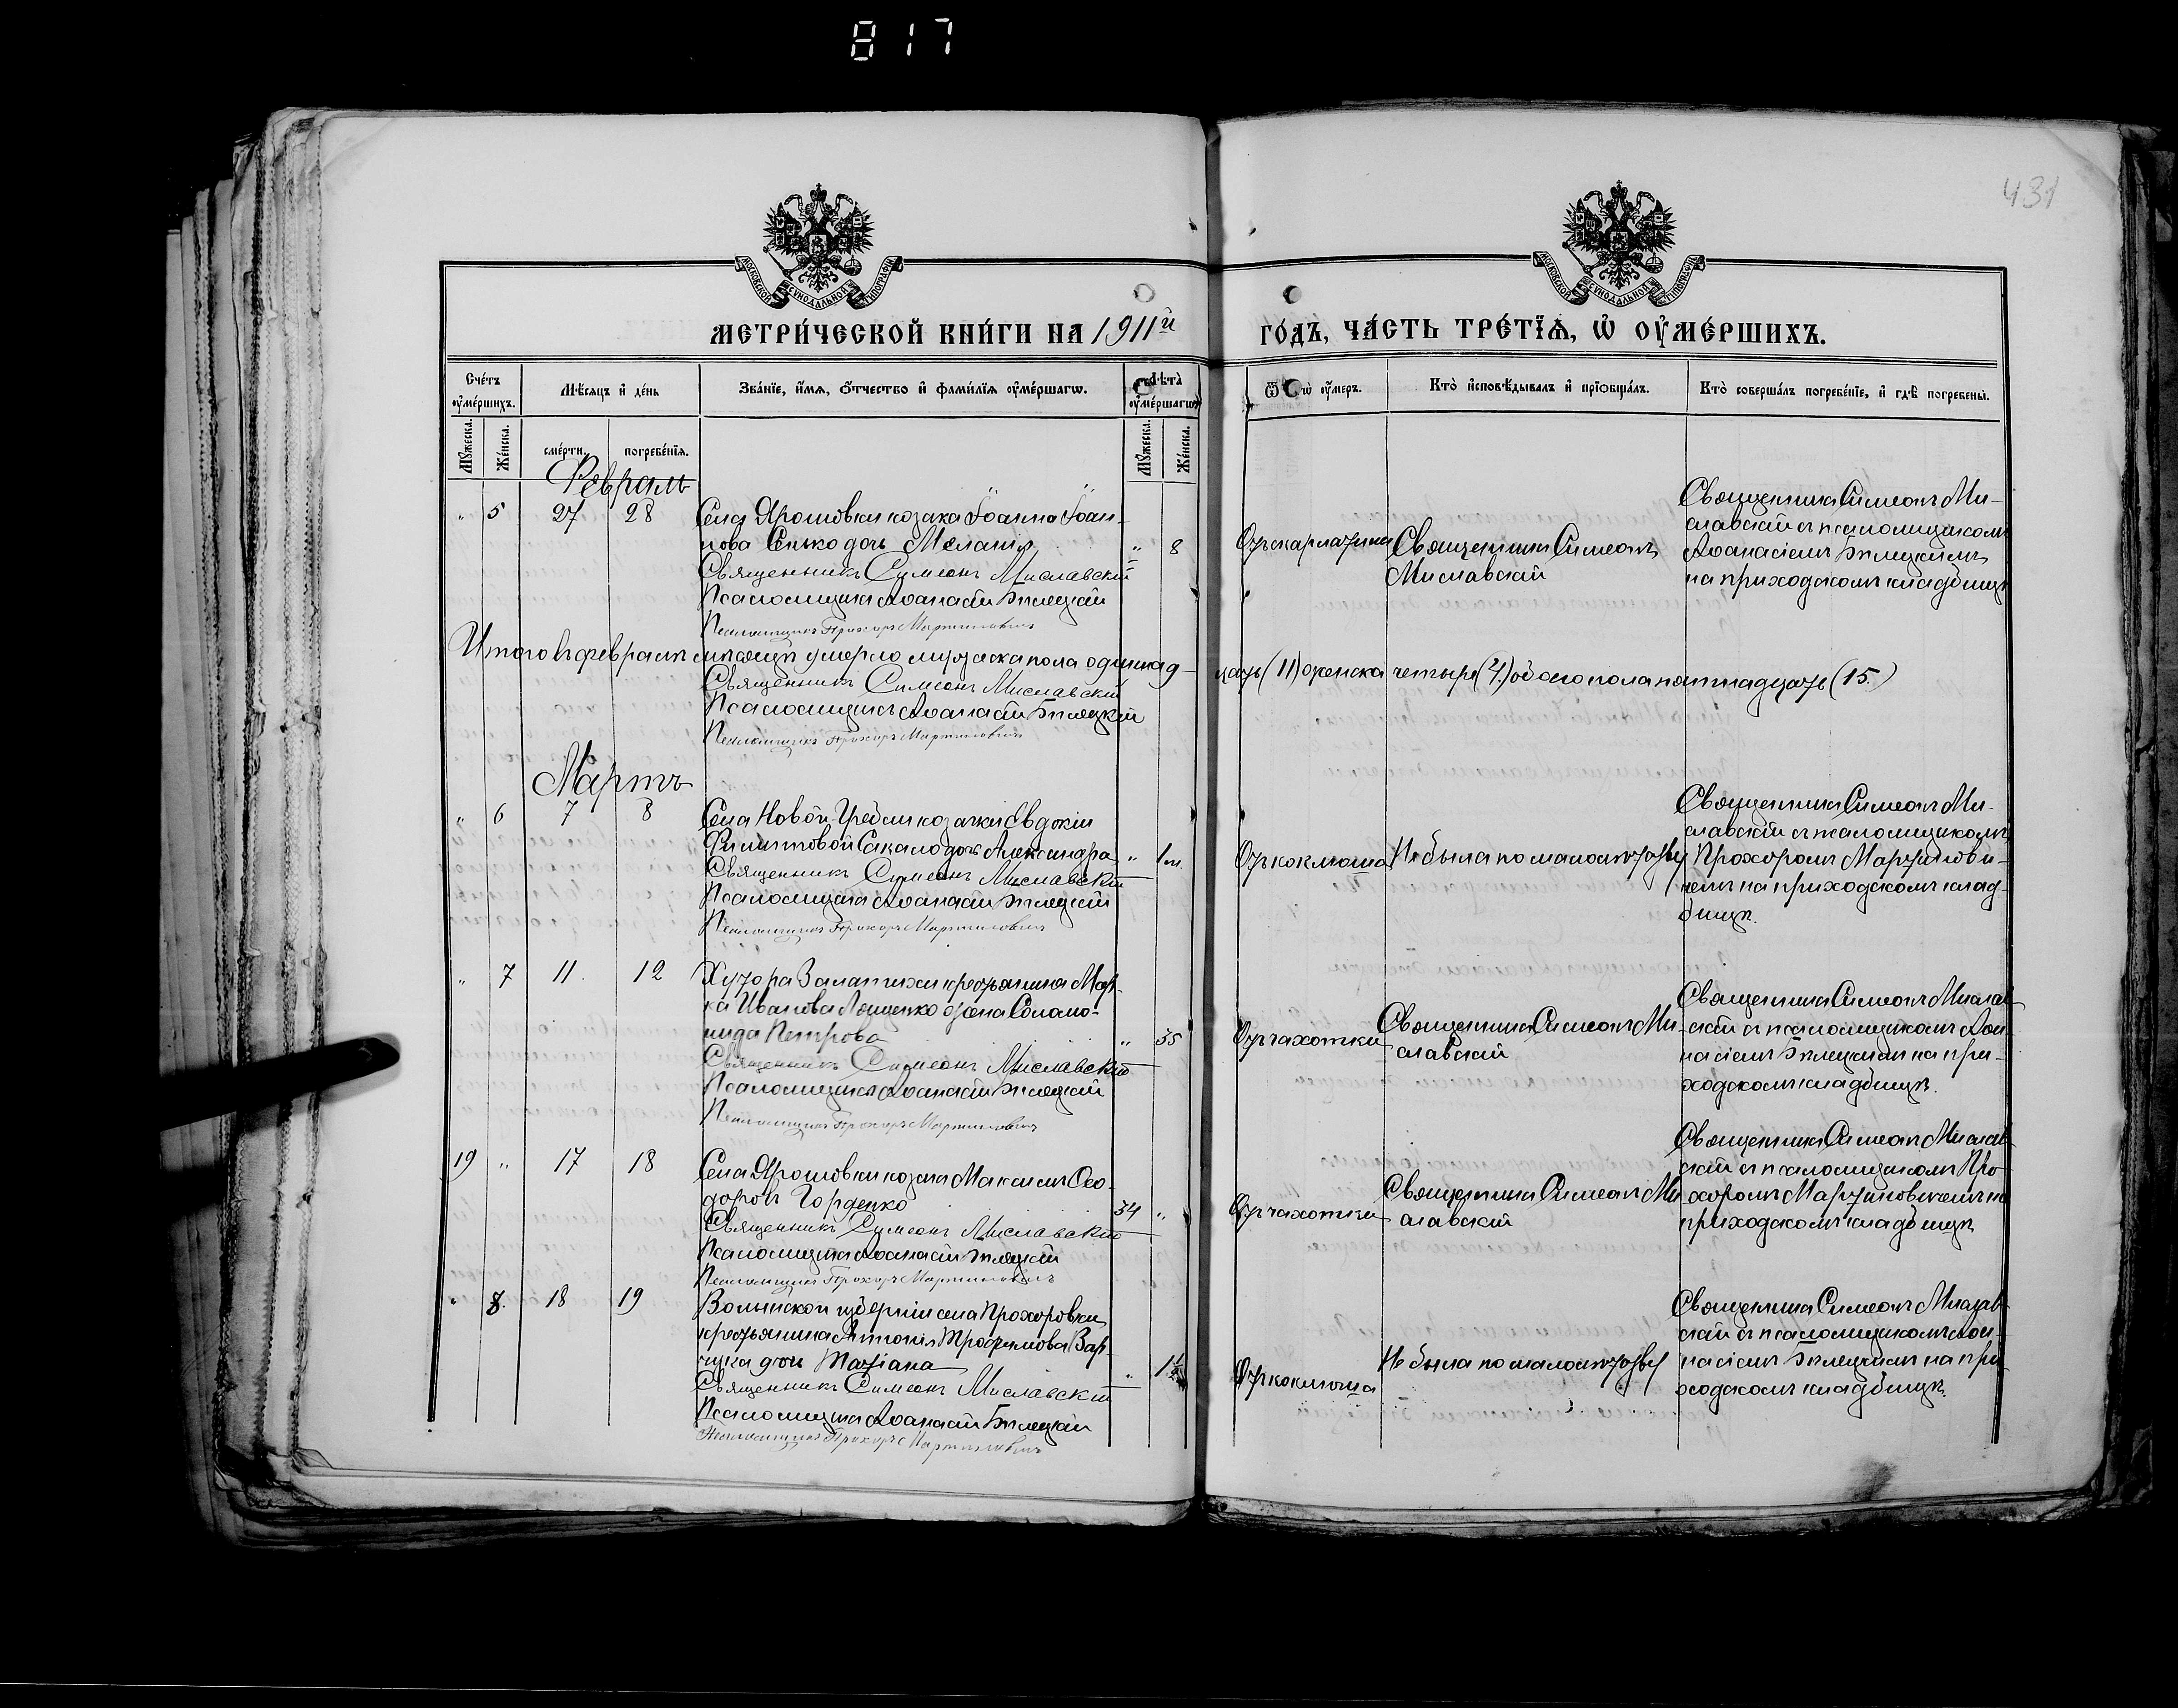 817
431
МОСКОВСКОЙ СУНОДАЛЬНОЙ ТИПОГРАФІИ
МОСКОВСКОЙ СУНОДАЛЬНОЙ ТИПОГРАФІИ
МЕТРИ́ЧЕСКОЙ КНИ́ГИ НА 1911й ГО́ДЪ, ЧА́СТЬ ТРЕ́ТЇѦ, Ѡ҆ ОУ҆МЕ́РШИХЪ.
Сче́тъ оу҆ме́ршихъ.
Мѣсѧцъ и҆ де́нь
Зва́нїе, и҆́мѧ, ѻ҆́тчество и҆ фами́лїѧ оу҆ме́ршагѡ.
Лѣта̀ оу҆ме́ршагѡ
Ѿ чегѡ̀ оу҆́меръ.
Кто̀ и҆сповѣ́дывалъ и҆ прїѡбща́лъ.
Кто̀ соверша́лъ погребе́нїе, и҆ гдѣ̀ погребены̀.
Мꙋ́жеска. Же́нска. сме́рти. погребе́нїѧ. Мꙋ́жеска. Же́нска.
Февраль
" 5 27 28
Села Ярошовки козака Іоанна Іоан-
нова Сенько дочь Меланія " 8
Священникъ Симеонъ Миславскій
Псаломщикъ Аѳанасій Бѣлецкій
Псаломщикъ Прохоръ Мартиновичъ
Отъ скарлатины
Священникъ Симеонъ
Миславскій
Священникъ Симеонъ Ми-
славскій съ псаломщикомъ
Аѳанасіемъ Бѣлецкимъ
на приходскомъ кладбищѣ
Итого въ февралѣ мѣсяцѣ умерло мужеска пола одиннад-
цать (11) женска четыре (4) обоего пола пятнадцать (15.)
Священникъ Симеонъ Миславскій
Псаломщикъ Аѳанасій Бѣлецкій
Псаломщикъ Прохоръ Мартиновичъ
Мартъ
" 6 7 8
Села Новой-Гребли козачки Евдокіи
Филипповой Сакало дочь Александра " 1 м.
Священникъ Симеонъ Миславскій
Псаломщикъ Аѳанасій Бѣлецкій
Псаломщикъ Прохоръ Мартиновичъ
Отъ коклюша
Не была по малолѣтству
Священникъ Симеонъ Ми-
славскій съ псаломщикомъ
Прохоромъ Мартинови-
чемъ на приходскомъ клад-
бищѣ.
" 7 11. 12
Хутора Залатихи крестьянина Мар-
ка Иванова Лященко жена Соломо-
нида Петрова " 35
Священникъ Симеонъ Миславскій
Псаломщикъ Аѳанасій Бѣлецкій
Псаломщикъ Прохоръ Мартиновичъ
Отъ чахотки
Священникъ Симеонъ Ми-
славскій
Священникъ Симеонъ Мислав-
скій съ псаломщикомъ Аѳа-
насіемъ Бѣлецкимъ на при-
ходскомъ кладбищѣ.
19 " 17 18
Села Ярошовки козакъ Максимъ Ѳео-
доровъ Горденко 34 "
Священникъ Симеонъ Миславскій
Псаломщикъ Аѳанасій Бѣлецкій
Псаломщикъ Прохоръ Мартиновичъ
Отъ чахотки
Священникъ Симеонъ Ми
славскій
Священникъ Симеонъ Мислав-
скій съ псаломщикомъ Про-
хоромъ Мартиновичемъ на
приходскомъ кладбищѣ
" 8. 18 19
Волынской губерніи села Прохоровки
крестьянина Антонія Трофимова Вар-
чука дочь Татіана " 1½
Священникъ Симеонъ Миславскій
Псаломщикъ Аѳанасій Бѣлецкій
Псаломщикъ Прохоръ Мартиновичъ
Отъ коклюша
Не была по малолѣтству
Священникъ Симеонъ Мислав-
скій съ псаломщикомъ Аѳа-
насіемъ Бѣлецкимъ на при-
ходскомъ кладбищѣ.